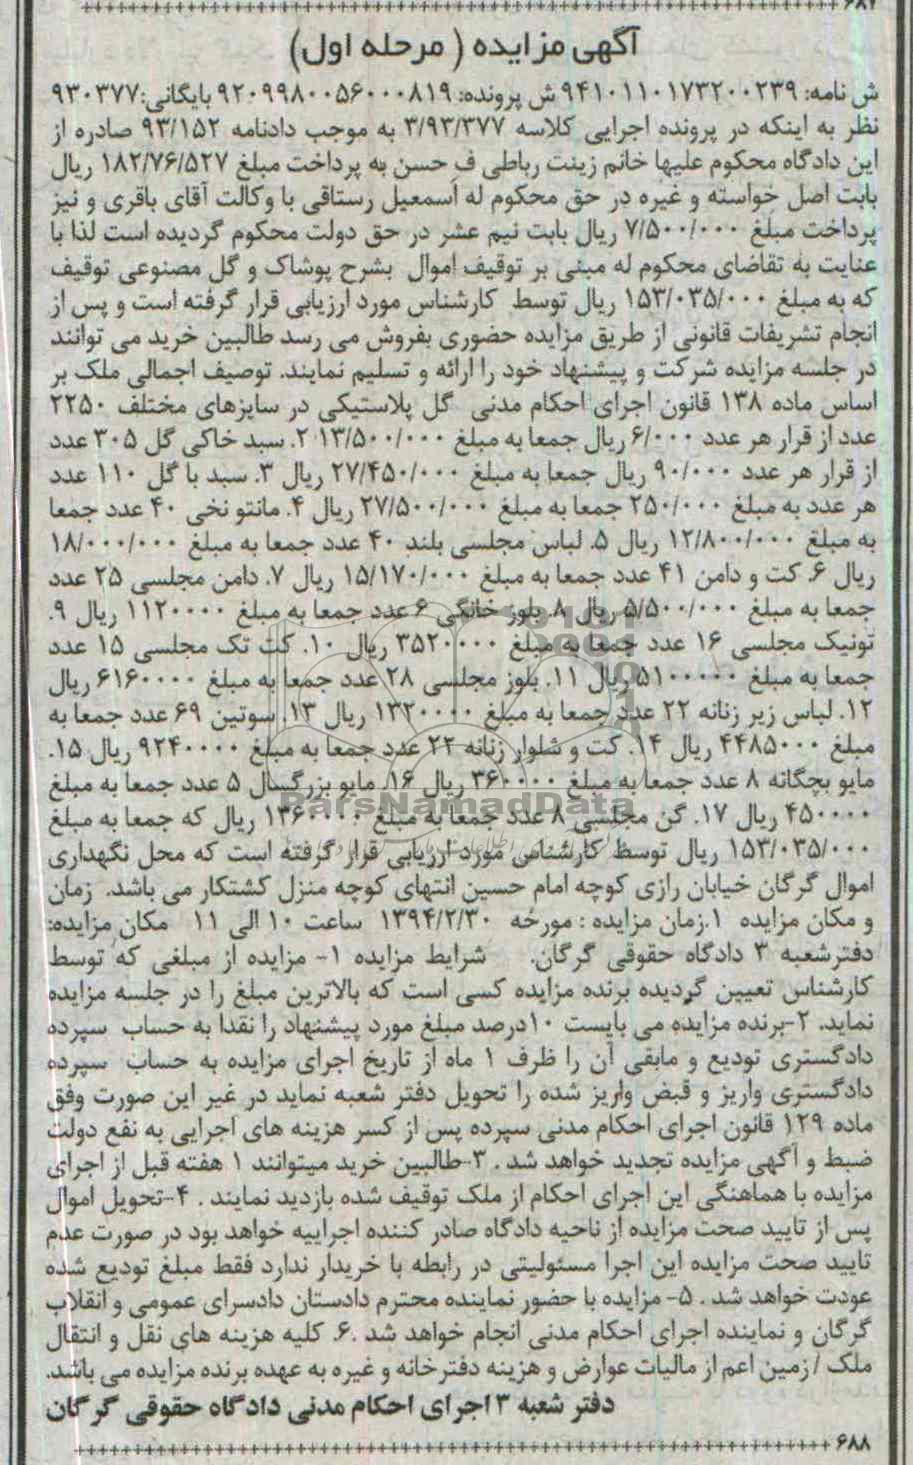 ۶۸۲
آگهی مزایده ( مرحله اول)
ش نامه: ۹۴۱۰۱۱۰۱۷۳۲۰۰۲۳۹ ش پرونده: ۹۲۰۹۹۸۰۰۵۶۰۰۰۸۱۹ بایگانی: ۹۳۰۳۷۷
نظر به اینکه در پرونده اجرایی کلاسه ۳/۹۳/۳۷۷ به موجب دادنامه ۹۳/۱۵۲ صادره از
این دادگاه محکوم علیها خانم زینت رباطی ف حسن به پرداخت مبلغ ۱۸۲/۷۶/۵۲۷ ریال
بابت اصل خواسته و غیره در حق محکوم له اسمعیل رستاقی با وکالت آقای باقری و نیز
پرداخت مبلغ ۷/۵۰۰/۰۰۰ ریال بابت نیم عشر در حق دولت محکوم گردیده است لذا با
عنایت به تقاضای محکوم له مبنی بر توقیف اموال بشرح پوشاک و گل مصنوعی توقیف
که به مبلغ ۱۵۳/۰۳۵/۰۰۰ ریال توسط کارشناس مورد ارزیابی قرار گرفته است و پس از
انجام تشریفات قانونی از طریق مزایده حضوری بفروش می رسد طالبین خرید می توانند
در جلسه مزایده شرکت و پیشنهاد خود را ارائه و تسلیم نمایند. توصیف اجمالی ملک بر
اساس ماده ۱۳۸ قانون اجرای احکام مدنی گل پلاستیکی در سایزهای مختلف ۲۲۵۰
عدد از قرار هر عدد ۶/۰۰۰ ریال جمعا به مبلغ ۱۳/۵۰۰/۰۰۰ ۲. سبد خاکی گل ۳۰۵ عدد
از قرار هر عدد ۹۰/۰۰۰ ریال جمعا به مبلغ ۲۷/۴۵۰/۰۰۰ ریال ۳. سبد با گل ۱۱۰ عدد
هر عدد به مبلغ ۲۵۰/۰۰۰ جمعا به مبلغ ۲۷/۵۰۰/۰۰۰ ریال ۴. مانتو نخی ۴۰ عدد جمعا
به مبلغ ۱۲/۸۰۰/۰۰۰ ریال ۵. لباس مجلسی بلند ۴۰ عدد جمعا به مبلغ ۱۸/۰۰۰/۰۰۰
ریال ۶. کت و دامن ۴۱ عدد جمعا به مبلغ ۱۵/۱۷۰/۰۰۰ ریال ۷. دامن مجلسی ۲۵ عدد
جمعا به مبلغ ۵/۵۰۰/۰۰۰ ریال ۸. بلوز خانگی ۶ عدد جمعا به مبلغ ۱۱۲۰۰۰۰ ریال ۹.
تونیک مجلسی ۱۶ عدد جمعا به مبلغ ۳۵۲۰۰۰۰ ریال ۱۰. کت تک مجلسی ۱۵ عدد
جمعا به مبلغ ۵۱۰۰۰۰۰ ریال ۱۱. بلوز مجلسی ۲۸ عدد جمعا به مبلغ ۶۱۶۰۰۰۰ ریال
۱۲. لباس زیر زنانه ۲۲ عدد جمعا به مبلغ ۱۳۲۰۰۰۰ ریال ۱۳. سوتین ۶۹ عدد جمعا به
مبلغ ۴۴۸۵۰۰۰ ریال ۱۴. کت و شلوار زنانه ۲۲ عدد جمعا به مبلغ ۹۲۴۰۰۰۰ ریال ۱۵.
مایو بچگانه ۸ عدد جمعا به مبلغ ۳۶۰۰۰۰ ریال ۱۶. مایو بزرگسال ۵ عدد جمعا به مبلغ
ParsNamadData
۴۵۰۰۰۰ ریال ۱۷. گن مجلسی ۸ عدد جمعا به مبلغ ۱۳۶۰۰۰۰ ریال که جمعا به مبلغ
۱۵۳/۰۳۵/۰۰۰ ریال توسط کارشناس مورد ارزیابی قرار گرفته است که محل نگهداری
اموال گرگان خیابان رازی کوچه امام حسین انتهای کوچه منزل کشتکار می باشد. زمان
و مکان مزایده ۱.زمان مزایده : مورخه ۱۳۹۴/۲/۳۰ ساعت ۱۰ الی ۱۱ مکان مزایده:
دفترشعبه ۳ دادگاه حقوقی گرگان. شرایط مزایده ۱- مزایده از مبلغی که توسط
کارشناس تعیین گردیده برنده مزایده کسی است که بالاترین مبلغ را در جلسه مزایده
نماید. ۲-برنده مزایده می بایست ۱۰درصد مبلغ مورد پیشنهاد را نقدا به حساب سپرده
دادگستری تودیع و مابقی آن را ظرف ۱ ماه از تاریخ اجرای مزایده به حساب سپرده
دادگستری واریز و قبض واریز شده را تحویل دفتر شعبه نماید در غیر این صورت وفق
ماده ۱۲۹ قانون اجرای احکام مدنی سپرده پس از کسر هزینه های اجرایی به نفع دولت
ضبط و آگهی مزایده تجدید خواهد شد . ۳-طالبین خرید میتوانند ۱ هفته قبل از اجرای
مزایده با هماهنگی این اجرای احکام از ملک توقیف شده بازدید نمایند . ۴-تحویل اموال
پس از تایید صحت مزایده از ناحیه دادگاه صادر کننده اجراییه خواهد بود در صورت عدم
تایید صحت مزایده این اجرا مسئولیتی در رابطه با خریدار ندارد فقط مبلغ تودیع شده
عودت خواهد شد . ۵- مزایده با حضور نماینده محترم دادستان دادسرای عمومی و انقلاب
گرگان و نماینده اجرای احکام مدنی انجام خواهد شد .۶. کلیه هزینه های نقل و انتقال
ملک / زمین اعم از مالیات عوارض و هزینه دفترخانه و غیره به عهده برنده مزایده می باشد.
دفتر شعبه ۳ اجرای احکام مدنی دادگاه حقوقی گرگان
۶۸۸